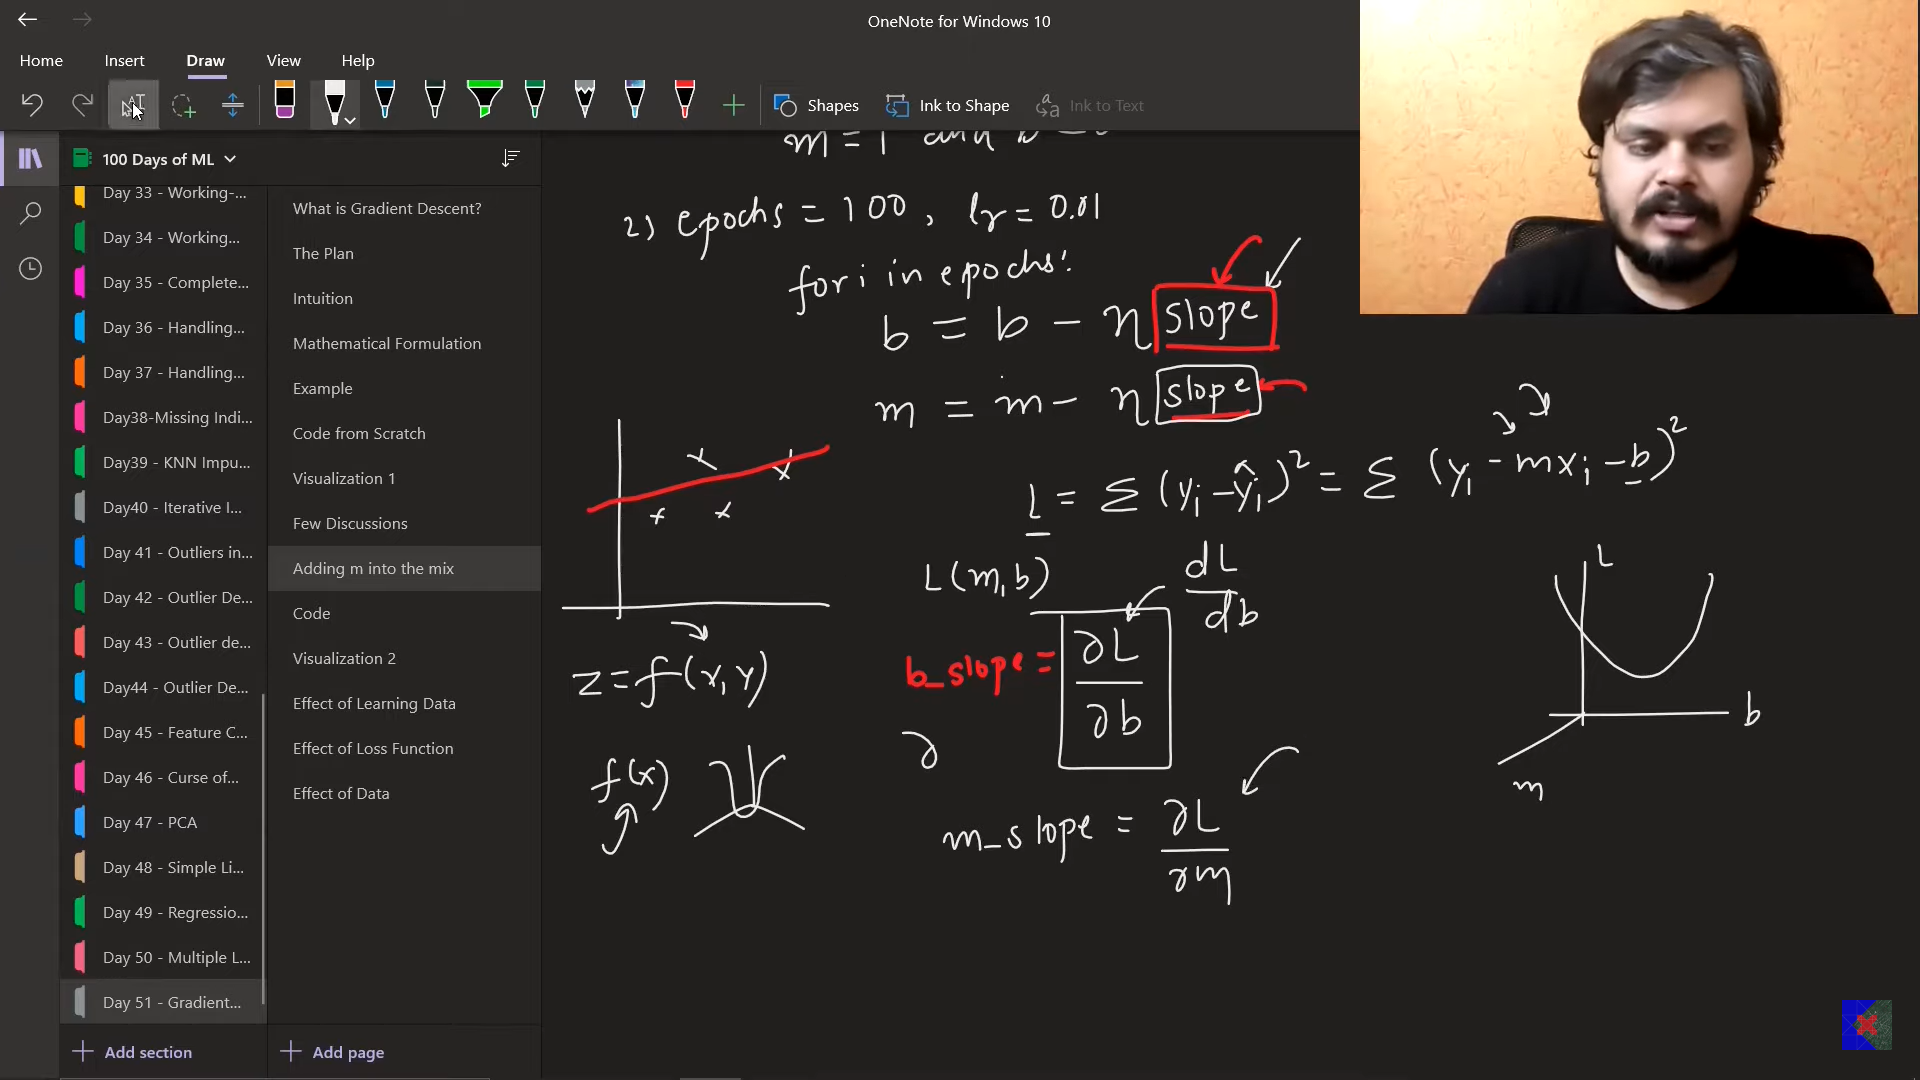 OneNote for Windows 10
Home Insert Draw View Help
Shapes Ink to Shape Ink to Text
100 Days of ML
Day 33 - Working-...
Day 34 - Working...
Day 35 - Complete...
Day 36 - Handling...
Day 37 - Handling...
Day38-Missing Indi...
Day39 - KNN Impu...
Day40 - Iterative I...
Day 41 - Outliers in...
Day 42 - Outlier De...
Day 43 - Outlier de...
Day44 - Outlier De...
Day 45 - Feature C...
Day 46 - Curse of...
Day 47 - PCA
Day 48 - Simple Li...
Day 49 - Regressio...
Day 50 - Multiple L...
Day 51 - Gradient...
Add section
What is Gradient Descent?
The Plan
Intuition
Mathematical Formulation
Example
Code from Scratch
Visualization 1
Few Discussions
Adding m into the mix
Code
Visualization 2
Effect of Learning Data
Effect of Loss Function
Effect of Data
Add page
m = 1 and b = 0
2) epochs = 100, lr = 0.01
for i in epochs:
b = b - η slope
m = m - η slope
L = Σ (yi - ŷi)² = Σ (yi - mxi - b)²
L(m,b)
dL
db
b_slope = ∂L
∂b
z = f(x, y)
∂
f(x)
m_slope = ∂L
∂m
L
b
m